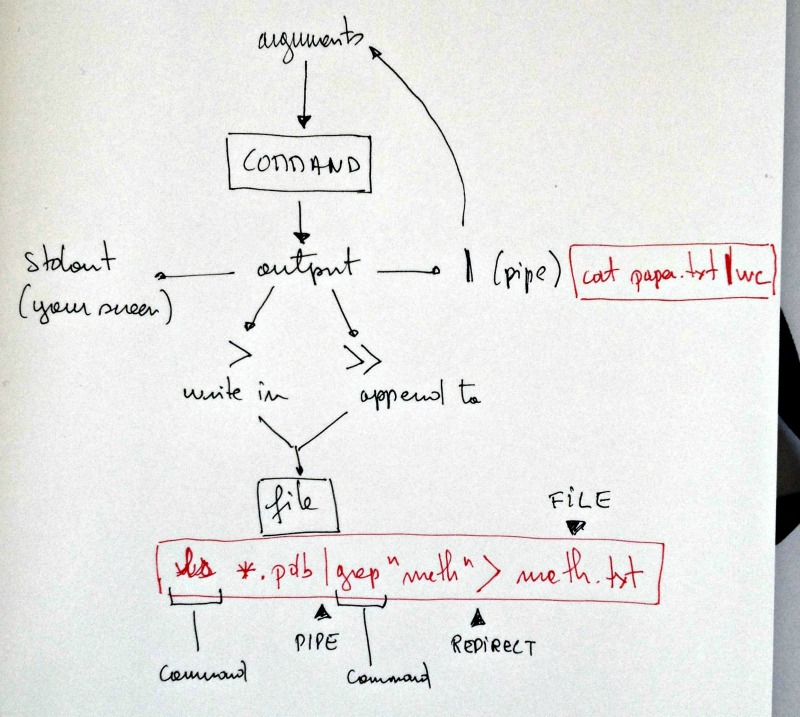 arguments
COMMAND
stdout
(your screen)
output
| (pipe)
cat paper.txt | wc
>
>>
write in
append to
file
FILE
*.pdb | grep "meth" > meth.txt
PIPE
REDIRECT
command
command